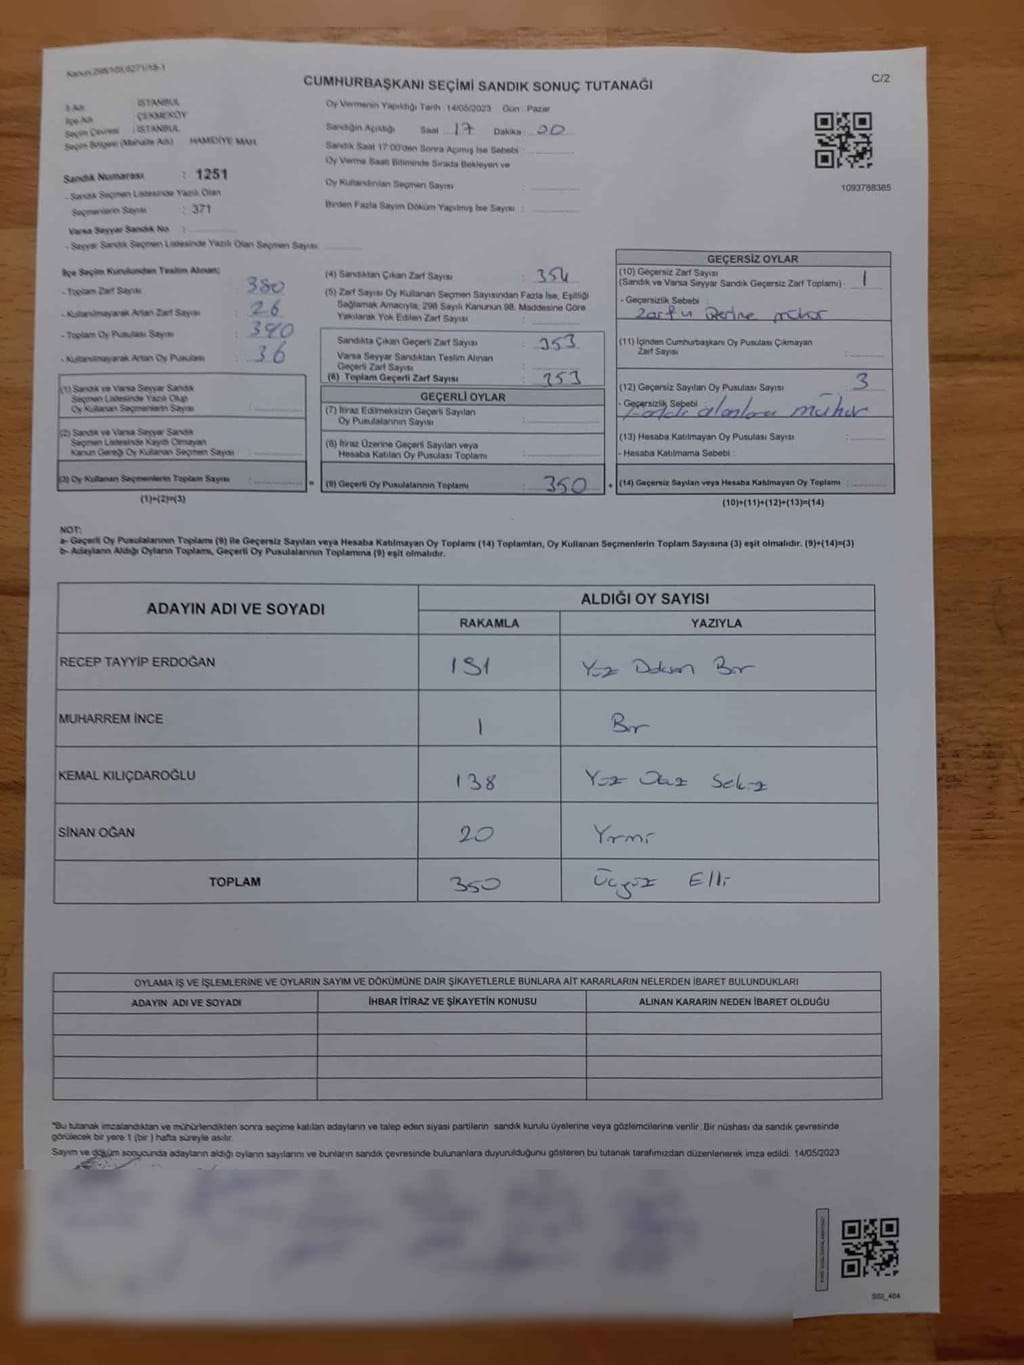 Kanun:298/105,6271/18-1
CUMHURBAŞKANI SEÇİMİ SANDIK SONUÇ TUTANAĞI
C/2
İl Adı : İSTANBUL
İlçe Adı : ÇEKMEKÖY
Seçim Çevresi : İSTANBUL
Seçim Bölgesi (Mahalle Adı) : HAMİDİYE MAH.
Sandık Numarası : 1251
- Sandık Seçmen Listesinde Yazılı Olan
Seçmenlerin Sayısı : 371
Varsa Seyyar Sandık No :
- Seyyar Sandık Seçmen Listesinde Yazılı Olan Seçmen Sayısı:
Oy Vermenin Yapıldığı Tarih :14/05/2023 Gün : Pazar
Sandığın Açıldığı Saat : 17 Dakika : 00
Sandık Saat 17:00'den Sonra Açımış İse Sebebi :
Oy Verme Saati Bitiminde Sırada Bekleyen ve
Oy Kullandırılan Seçmen Sayısı :
Birden Fazla Sayım Döküm Yapılmış İse Sayısı :
1093788385
İlçe Seçim Kurulundan Teslim Alınan;
- Toplam Zarf Sayısı : 380
- Kullanılmayarak Artan Zarf Sayısı : 26
- Toplam Oy Pusulası Sayısı : 390
- Kullanılmayarak Artan Oy Pusulası : 36
(1) Sandık ve Varsa Seyyar Sandık
Seçmen Listesinde Yazılı Olup
Oy Kullanan Seçmenlerin Sayısı :
(2) Sandık ve Varsa Seyyar Sandık
Seçmen Listesinde Kayıtlı Olmayan
Kanun Gereği Oy Kullanan Seçmen Sayısı :
(3) Oy Kullanan Seçmenlerin Toplam Sayısı :
(1)+(2)=(3)
(4) Sandıktan Çıkan Zarf Sayısı : 354
(5) Zarf Sayısı Oy Kullanan Seçmen Sayısından Fazla İse, Eşitliği
Sağlamak Amacıyla, 298 Sayılı Kanunun 98. Maddesine Göre
Yakılarak Yok Edilen Zarf Sayısı :
Sandıkta Çıkan Geçerli Zarf Sayısı : 353
Varsa Seyyar Sandıktan Teslim Alınan
Geçerli Zarf Sayısı :
(6) Toplam Geçerli Zarf Sayısı : 353
GEÇERLİ OYLAR
(7) İtiraz Edilmeksizin Geçerli Sayılan
Oy Pusulalarının Sayısı :
(8) İtiraz Üzerine Geçerli Sayılan veya
Hesaba Katılan Oy Pusulası Toplamı :
= (9) Geçerli Oy Pusulalarının Toplamı : 350 +
GEÇERSİZ OYLAR
(10) Geçersiz Zarf Sayısı
(Sandık ve Varsa Seyyar Sandık Geçersiz Zarf Toplamı) : 1
- Geçersizlik Sebebi :
Zarfın üzerine mühür
(11) İçinden Cumhurbaşkanı Oy Pusulası Çıkmayan
Zarf Sayısı :
(12) Geçersiz Sayılan Oy Pusulası Sayısı : 3
- Geçersizlik Sebebi :
alanlara mühür
(13) Hesaba Katılmayan Oy Pusulası Sayısı :
- Hesaba Katılmama Sebebi :
(14) Geçersiz Sayılan veya Hesaba Katılmayan Oy Toplamı :
(10)+(11)+(12)+(13)=(14)
NOT:
a- Geçerli Oy Pusulalarının Toplamı (9) ile Geçersiz Sayılan veya Hesaba Katılmayan Oy Toplamı (14) Toplamları, Oy Kullanan Seçmenlerin Toplam Sayısına (3) eşit olmalıdır. (9)+(14)=(3)
b- Adayların Aldığı Oyların Toplamı, Geçerli Oy Pusulalarının Toplamına (9) eşit olmalıdır.
ADAYIN ADI VE SOYADI ALDIĞI OY SAYISI
RAKAMLA YAZIYLA
RECEP TAYYİP ERDOĞAN 191 Yüz Doksan Bir
MUHARREM İNCE 1 Bir
KEMAL KILIÇDAROĞLU 138 Yüz Otuz Sekiz
SİNAN OĞAN 20 Yirmi
TOPLAM 350 Üçyüz Elli
OYLAMA İŞ VE İŞLEMLERİNE VE OYLARIN SAYIM VE DÖKÜMÜNE DAİR ŞİKAYETLERLE BUNLARA AİT KARARLARIN NELERDEN İBARET BULUNDUKLARI
ADAYIN ADI VE SOYADI İHBAR İTİRAZ VE ŞİKAYETİN KONUSU ALINAN KARARIN NEDEN İBARET OLDUĞU
*Bu tutanak imzalandıktan ve mühürlendikten sonra seçime katılan adayların ve talep eden siyasi partilerin sandık kurulu üyelerine veya gözlemcilerine verilir. Bir nüshası da sandık çevresinde
görülecek bir yere 1 (bir ) hafta süreyle asılır.
Sayım ve döküm sonucunda adayların aldığı oyların sayılarını ve bunların sandık çevresinde bulunanlara duyurulduğunu gösteren bu tutanak tarafımızdan düzenlenerek imza edildi. 14/05/2023
SSI_404